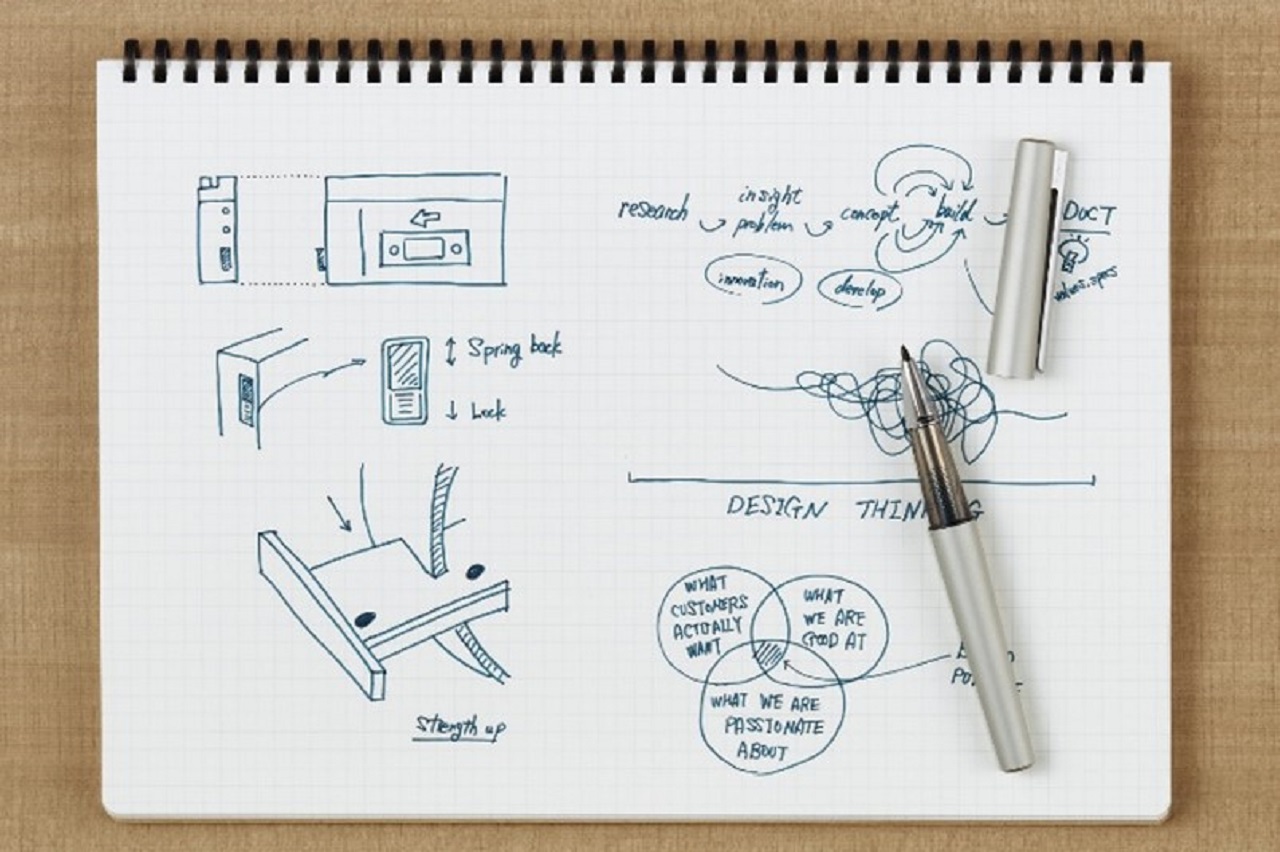 research
insight
problem
concept
build
DUCT
innovation
develop
values.specs
Spring back
Lock
DESIGN THIN G
WHAT
CUSTOMERS
ACTUALLY
WANT
WHAT
WE ARE
GOOD AT
WHAT WE ARE
PASSIONATE
ABOUT
Strength up